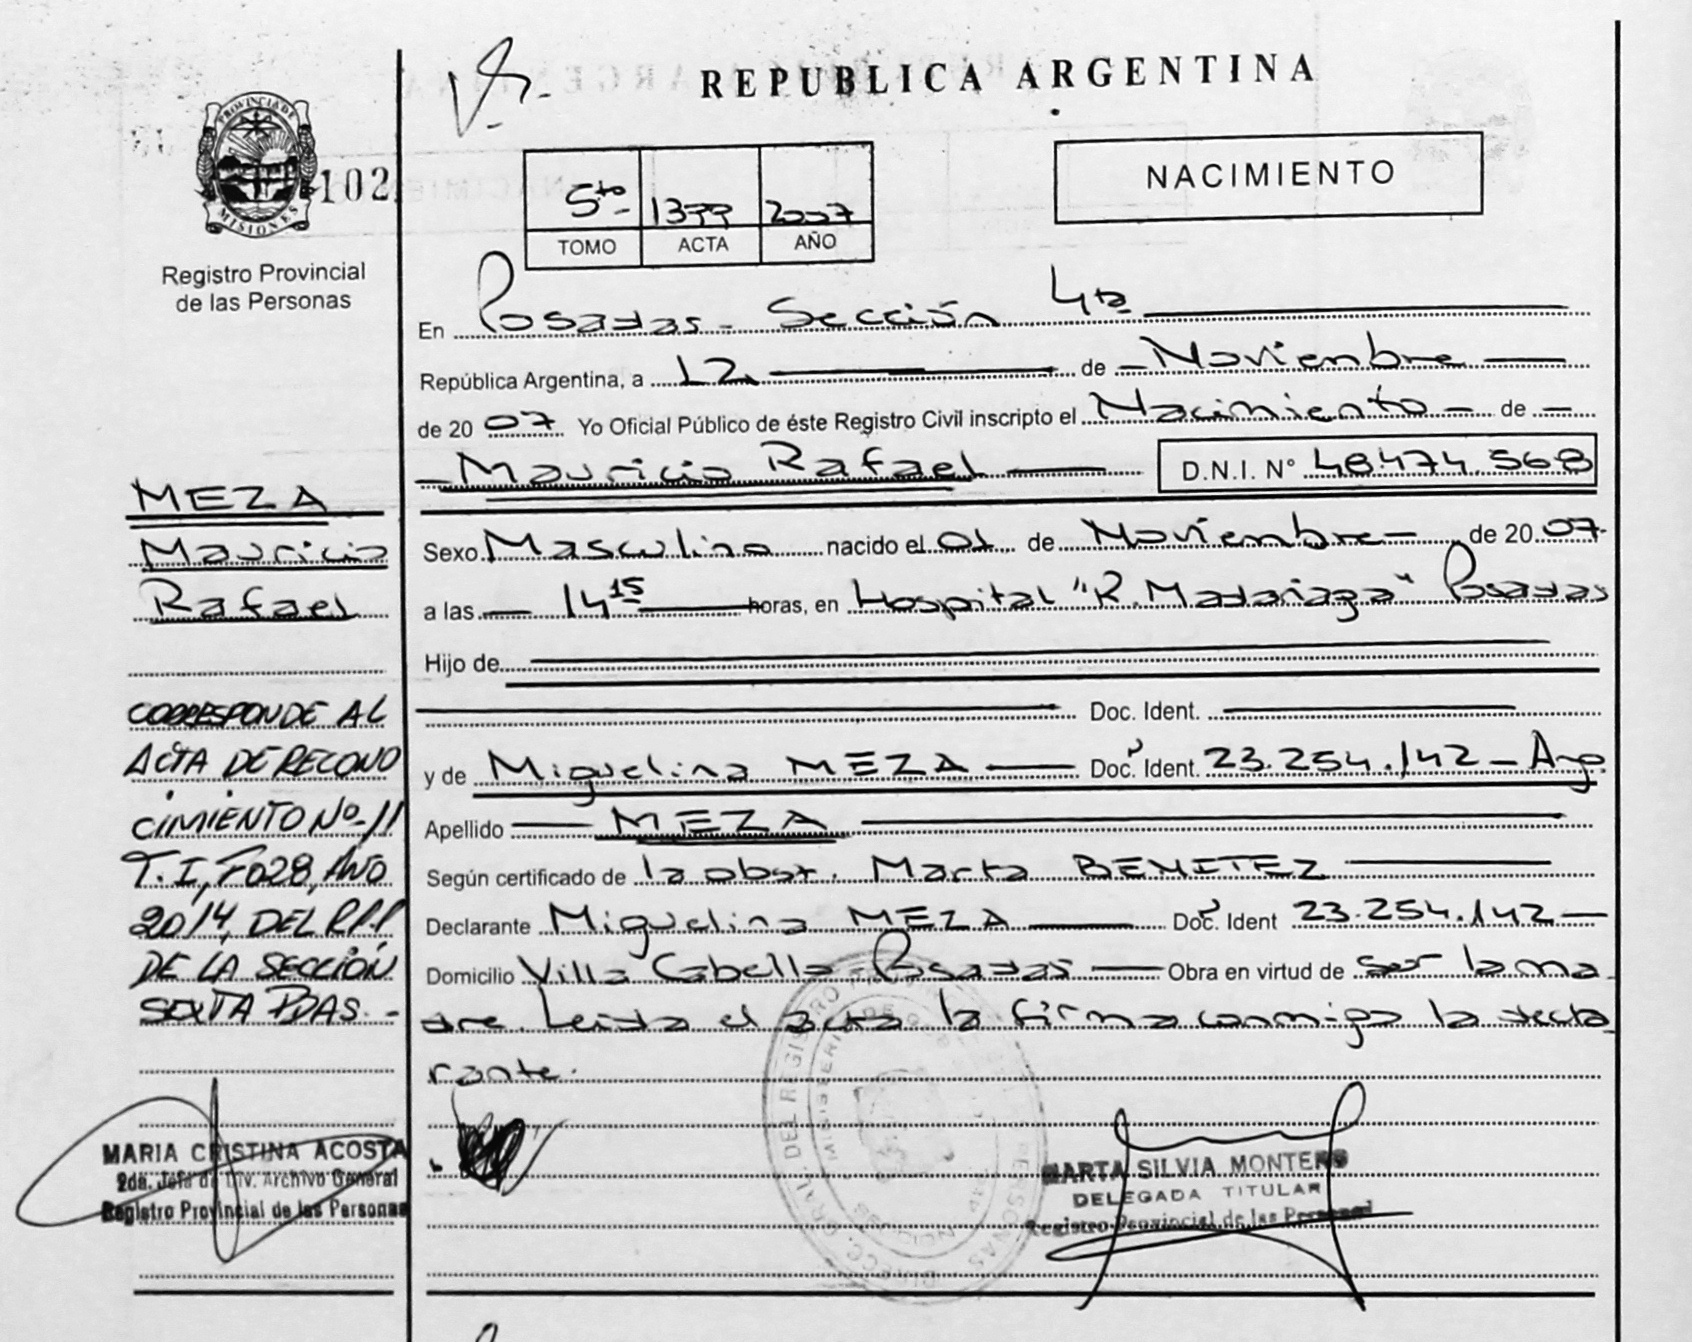 REPUBLICA ARGENTINA
PROVINCIA DE
MISIONES
102
Registro Provincial
de las Personas
5to - 1399 2007
TOMO ACTA AÑO
NACIMIENTO
En Posadas - Sección 4ta
República Argentina, a 12 de Noviembre
de 2007 Yo Oficial Público de éste Registro Civil inscripto el Nacimiento - de -
Mauricio Rafael D.N.I. N° 48.474.568
Sexo Masculino nacido el 01 de Noviembre - de 2007-
a las 14 15 horas, en Hospital "R. Madariaga" Posadas
Hijo de
Doc. Ident.
y de Miguelina MEZA Doc. Ident. 23.254.142 - Arg
Apellido MEZA
Según certificado de la obst. Marta BENITEZ
Declarante Miguelina MEZA Doc. Ident 23.254.142
Domicilio Villa Cabello - Posadas Obra en virtud de ser la ma
dre. Leida el acta la firma conmigo la decla
rante.
MEZA
Mauricio
Rafael
CORRESPONDE AL
ACTA DE RECONO
CIMIENTO Nº-11
T. I, Fº 28, AÑO
2014, DEL R.P.P
DE LA SECCIÓN
SEXTA PDAS. -
MARIA CRISTINA ACOSTA
2da. Jefa de Div. Archivo General
Registro Provincial de las Personas
MARTA SILVIA MONTERO
DELEGADA TITULAR
Registro Provincial de las Personas